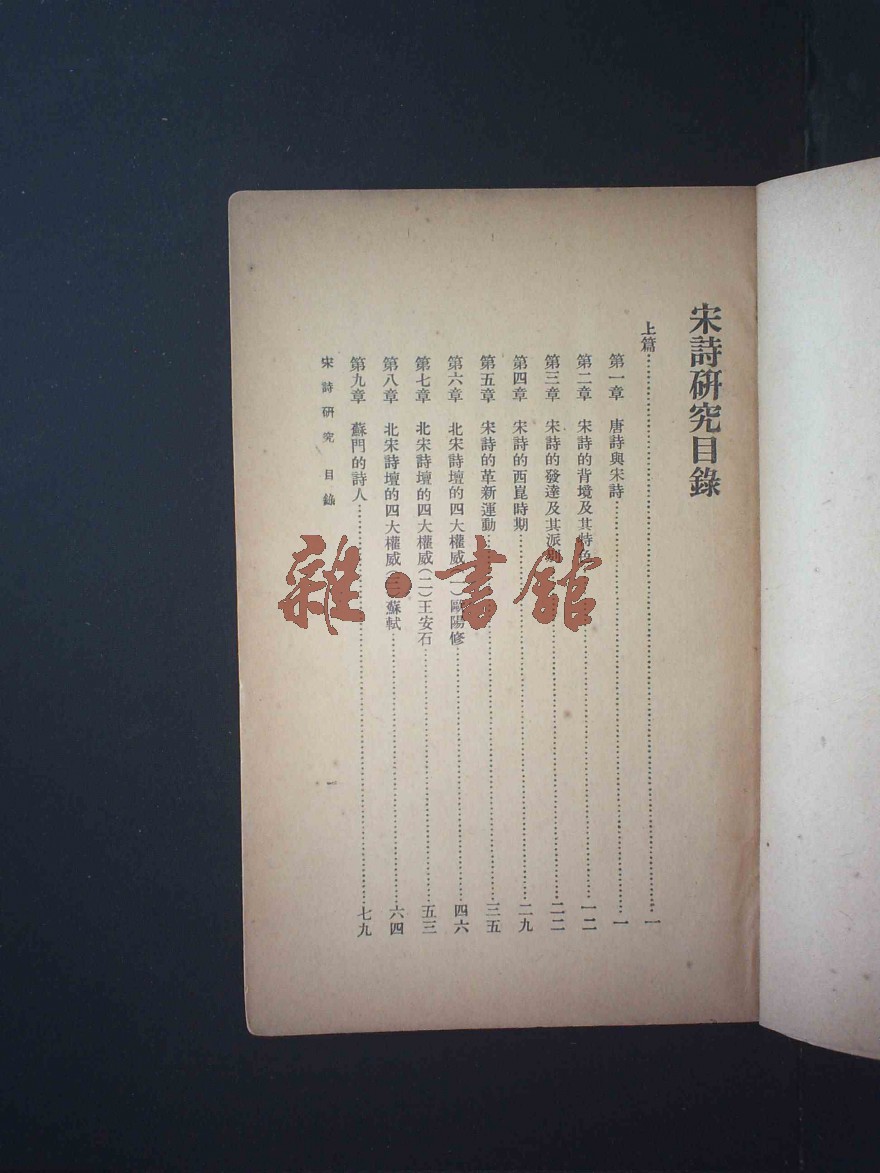 宋詩研究目錄
上篇……一
第一章 唐詩與宋詩……一
第二章 宋詩的背境及其特色……一二
第三章 宋詩的發達及其派別……二二
第四章 宋詩的西崑時期……二九
第五章 宋詩的革新運動……三五
第六章 北宋詩壇的四大權威(一)歐陽修……四六
第七章 北宋詩壇的四大權威(二)王安石……五三
第八章 北宋詩壇的四大權威(三)蘇軾……六四
第九章 蘇門的詩人……七九
宋詩研究 目錄
一
雜·書館